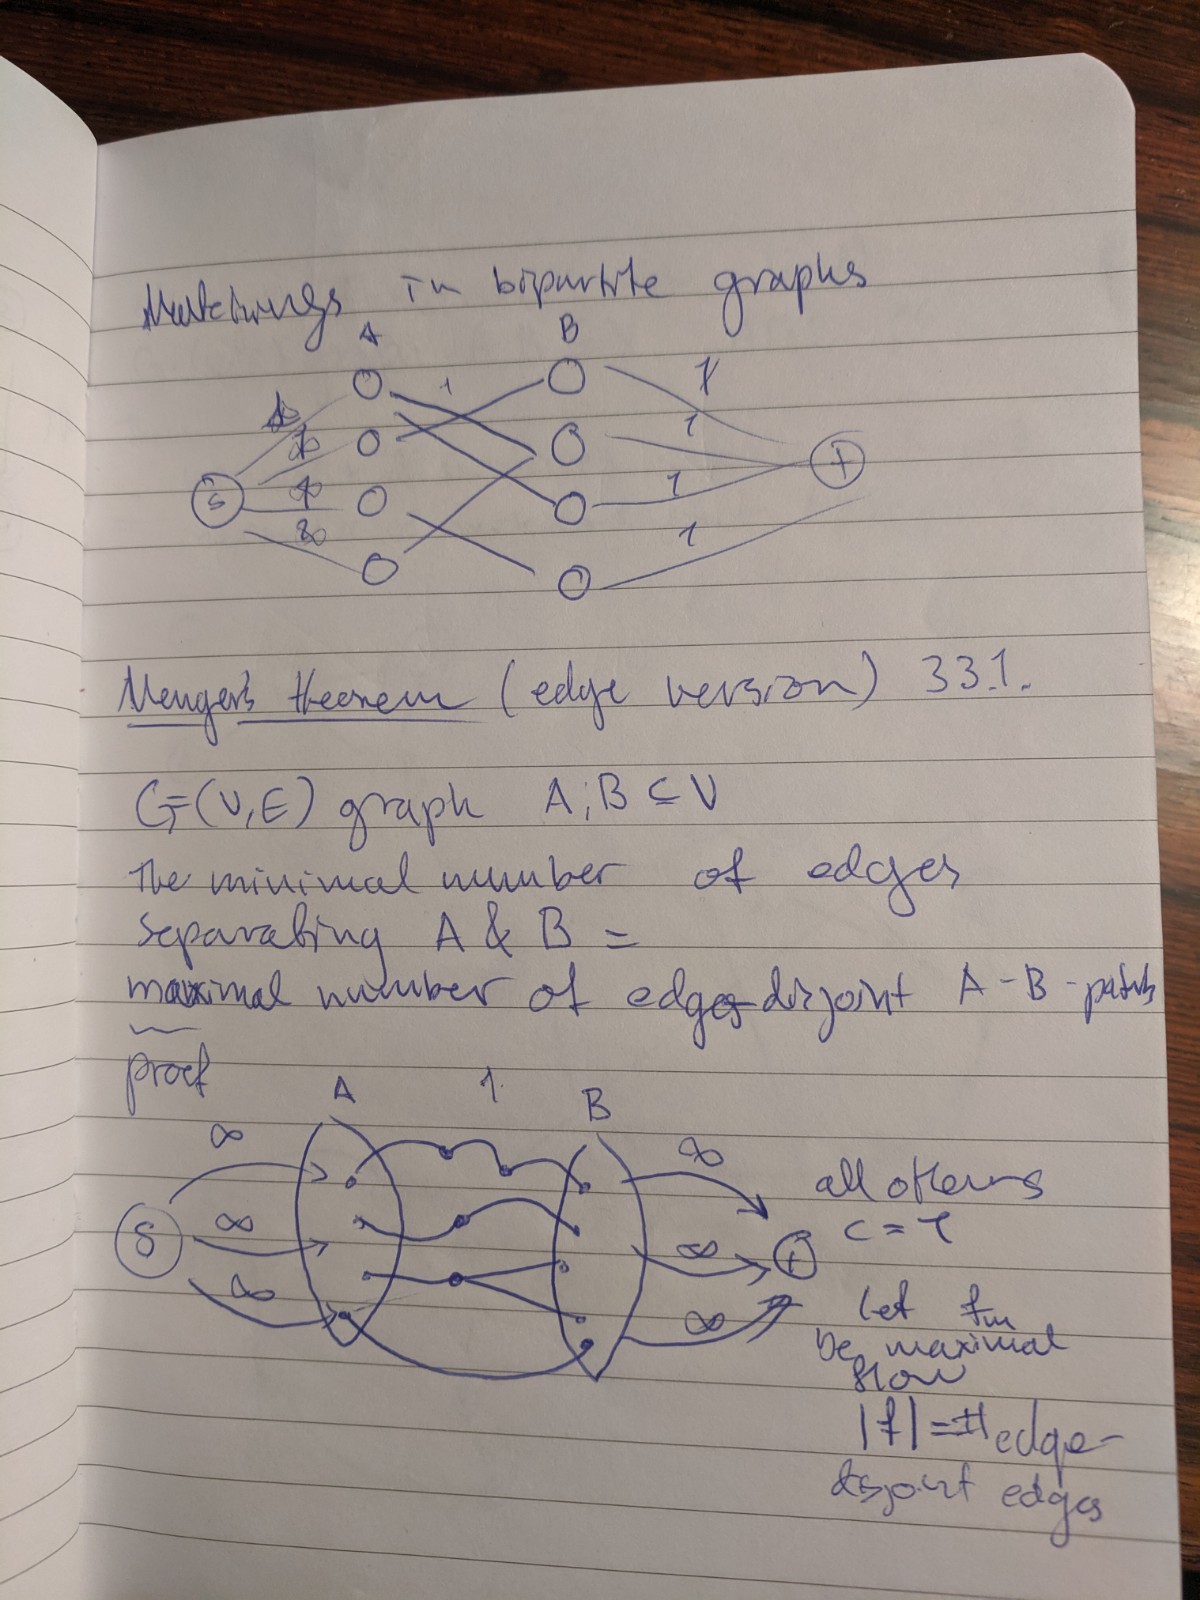 Matchings in bipartite graphs
A B
1 1
1
S t
1
1
Menger's theorem (edge version) 3.3.1.
G=(V,E) graph A,B ⊆ V
The minimal number of edges
separating A & B =
maximal number of edge-disjoint A-B-paths
proof
A 1 B
∞ ∞
all others
S ∞ ∞ t c=1
∞ ∞
let fm
be maximal
flow
|f|=# edge-
disjoint edges